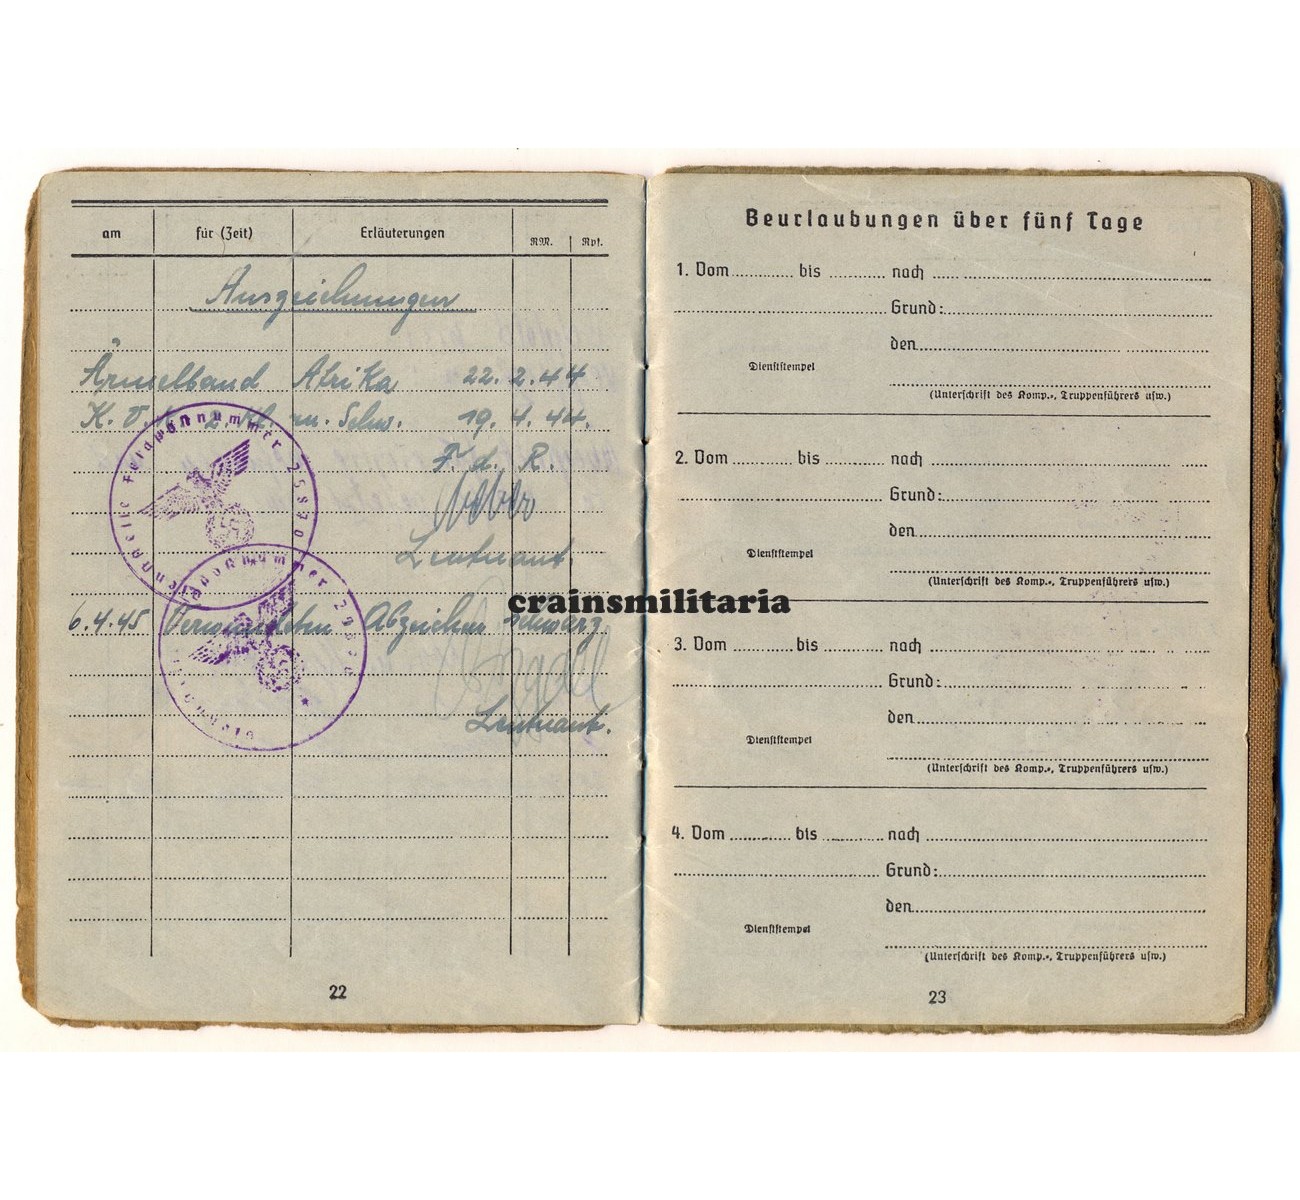 am für (Zeit) Erläuterungen RM. Rpf.
Auszeichnungen
Ärmelband Afrika 22.2.44
K.V.K. 2. Kl. m. Schw. 19.4.44.
F. d. R.
Weber
Leutnant.
Dienststelle Feldpostnummer
Feldpostnummer
Dienststelle
6.4.45 Verwundeten Abzeichen schwarz
Leutnant.
22
Beurlaubungen über fünf Tage
1. Vom bis nach
Grund:
den
Dienststempel
(Unterschrift des Komp.-, Truppenführers usw.)
2. Vom bis nach
Grund:
den
Dienststempel
(Unterschrift des Komp.-, Truppenführers usw.)
3. Vom bis nach
Grund:
den
Dienststempel
(Unterschrift des Komp.-, Truppenführers usw.)
4. Vom bis nach
Grund:
den
Dienststempel
(Unterschrift des Komp.-, Truppenführers usw.)
23
crainsmilitaria